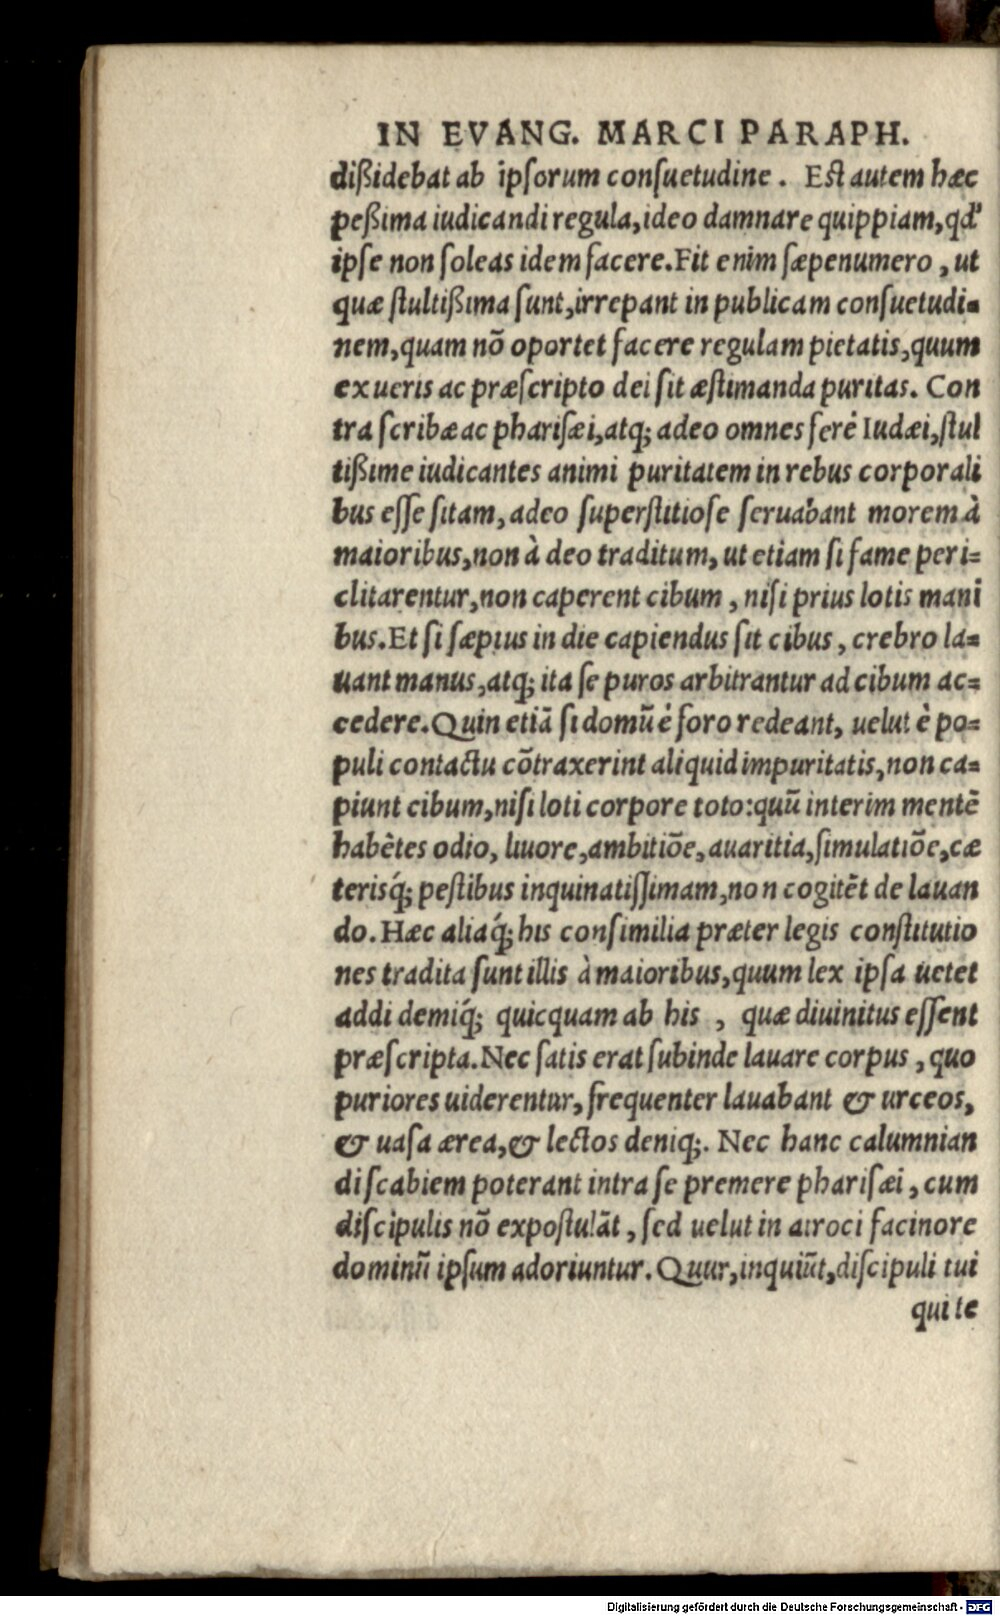 IN EVANG. MARCI PARAPH.
dißidebat ab ipsorum consuetudine. Est autem hæc
peßima iudicandi regula, ideo damnare quippiam, qd'
ipse non soleas idem facere. Fit enim sæpenumero, ut
quæ stultißima sunt, irrepant in publicam consuetudi=
nem, quam nō oportet facere regulam pietatis, quum
ex ueris ac præscripto dei sit æstimanda puritas. Con
tra scribæ ac pharisæi, atq; adeo omnes ferè Iudæi, stul
tißime iudicantes animi puritatem in rebus corporali
bus esse sitam, adeo superstitiose seruabant morem à
maioribus, non à deo traditum, ut etiam si fame peri=
clitarentur, non caperent cibum, nisi prius lotis mani
bus. Et si sæpius in die capiendus sit cibus, crebro la=
uant manus, atq; ita se puros arbitrantur ad cibum ac=
cedere. Quin etiā si domū è foro redeant, uelut è po=
puli contactu cōtraxerint aliquid impuritatis, non ca=
piunt cibum, nisi loti corpore toto: quū interim mentē
habētes odio, liuore, ambitiōe, auaritia, simulatiōe, cæ
terisq́; pestibus inquinatissimam, non cogitēt de lauan
do. Hæc aliaq́; his consimilia præter legis constitutio
nes tradita sunt illis à maioribus, quum lex ipsa uetet
addi demiq́; quicquam ab his, quæ diuinitus essent
præscripta. Nec satis erat subinde lauare corpus, quo
puriores uiderentur, frequenter lauabant & urceos,
& uasa ærea, & lectos deniq;. Nec hanc calumnian
di scabiem poterant intra se premere pharisæi, cum
discipulis nō expostulāt, sed uelut in atroci facinore
dominū ipsum adoriuntur. Quur, inquiūt, discipuli tui
qui te
Digitalisierung gefördert durch die Deutsche Forschungsgemeinschaft - DFG